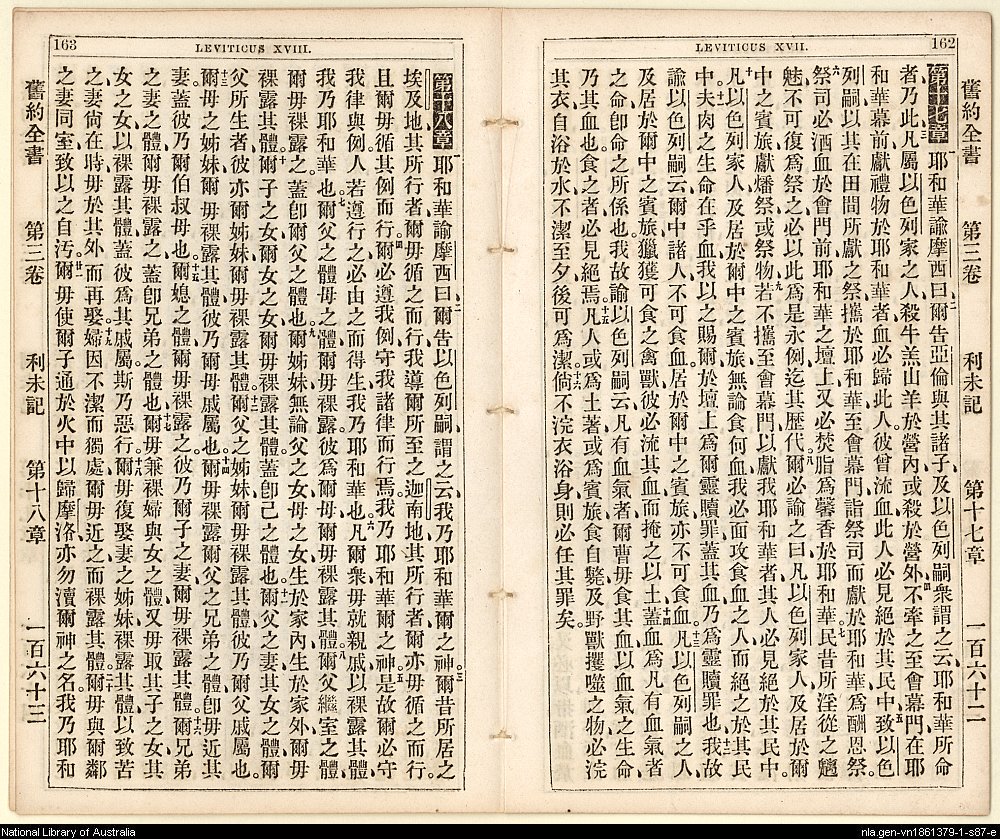 162
LEVITICUS XVII.
舊約全書 第三卷 利未記 第十七章 一百六十二
第十七章 一耶和華諭摩西曰、二爾告亞倫與其諸子、及以色列嗣衆、謂之云、耶和華所命
者乃此、三凡屬以色列家之人、殺牛羔山羊於營內、或殺於營外、四不牽之至會幕門、在耶
和華幕前獻禮物於耶和華者、血必歸此人、彼曾流血、此人必見絕於其民中、五致以色
列嗣以其在田間所獻之祭、攜於耶和華、至會幕門、詣祭司、而獻於耶和華、爲酬恩祭、
六祭司必洒血於會門前耶和華之壇上、又必焚脂爲馨香於耶和華、七民昔所淫從之魑
魅、不可復爲祭之、必以此爲是永例、迄其歷代、八爾必諭之曰、凡以色列家人、及居於爾
中之賓旅、獻燔祭或祭物、九若不攜至會幕門、以獻我耶和華者、其人必見絕於其民中、
十凡以色列家人、及居於爾中之賓旅、無論食何血、我必面攻食血之人、而絕之於其民
中、十一夫肉之生命在乎血、我以之賜爾於壇上、爲爾靈贖罪、蓋其血乃爲靈贖罪也、十二我故
諭以色列嗣云、爾中諸人不可食血、居於爾中之賓旅、亦不可食血、十三凡以色列嗣之人、
及居於爾中之賓旅、獵獲可食之禽獸、彼必流其血、而掩之以土、十四蓋血爲凡有血氣者
之命、卽命之所係也、我故諭以色列嗣云、凡有血氣者、爾曹毋食其血、以血氣之生命
乃其血也、食之者必見絕焉、十五凡人或爲土著、或爲賓旅、食自斃、及野獸攫噬之物、必浣
其衣、自浴於水、不潔至夕、後可爲潔、十六倘不浣衣浴身、則必任其罪矣。
163
LEVITICUS XVIII.
第十八章 一耶和華諭摩西曰、二爾告以色列嗣、謂之云、我乃耶和華爾之神、三爾昔所居之
埃及地、其所行者、爾毋循之而行、我導爾所至之迦南地、其所行者、爾亦毋循之而行、
且爾毋循其例而行、四爾必遵我例、守我諸律而行焉、我乃耶和華爾之神、五是故爾必守
我律與例、人若遵行之、必由之而得生、我乃耶和華也、六凡爾衆毋就親戚以裸露其體、
我乃耶和華也、七爾父之體毋裸露、彼爲爾母、爾毋裸露其體、八爾父繼室之體
爾毋裸露之、蓋卽爾父之體也、九爾姊妹無論父之女、母之女、生於家內、生於家外、爾毋
裸露其體、十爾子之女、爾女之女、爾毋裸露其體、蓋卽己之體也、十一爾父之妻、其女乃爾
父所生者、彼亦爾姊妹、爾毋裸露其體、十二爾父之姊妹、爾毋裸露其體、彼乃爾父戚屬也、
十三爾母之姊妹、爾毋裸露其體、彼乃爾母戚屬也、十四爾毋裸露爾父之兄弟之體、卽毋近其
妻、蓋彼乃爾伯叔母也、十五爾媳之體、爾毋裸露之、彼乃爾子之妻、爾毋裸露其體、十六爾兄弟
之妻之體、爾毋裸露之、蓋卽兄弟之體也、十七爾毋兼裸婦與女之體、又毋取其子之女、其
女之女、以裸露其體、蓋彼爲其戚屬、斯乃惡行、十八爾毋復娶妻之姊妹、裸露其體、以致苦
之、妻尙在時、毋於其外而再娶、十九婦因不潔而獨處、爾毋近之、而裸露其體、二十爾毋與爾鄰
之妻同室、致以之自汚、廿一爾毋使爾子通於火中、以歸摩洛、亦勿瀆爾神之名、我乃耶和
舊約全書 第三卷 利未記 第十八章 一百六十三
National Library of Australia
nla.gen-vn1861379-1-s87-e